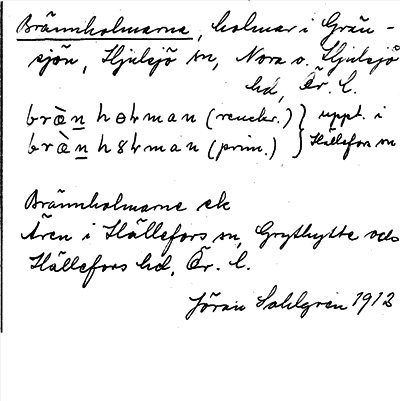 Brännholmarne, holmar i Grän-
sjön, Hjulsjö sn, Nora o. Hjulsjö
hd, Ör. l.
brä̀n hɵlman (rencker.) } uppt. i
brä̀n h8lman (prim.) } Hällefors sn
Brännholmarne ek
Ären i Hällefors sn, Grythytte och
Hällefors hd, Ör. l.
Jöran Sahlgren 1912